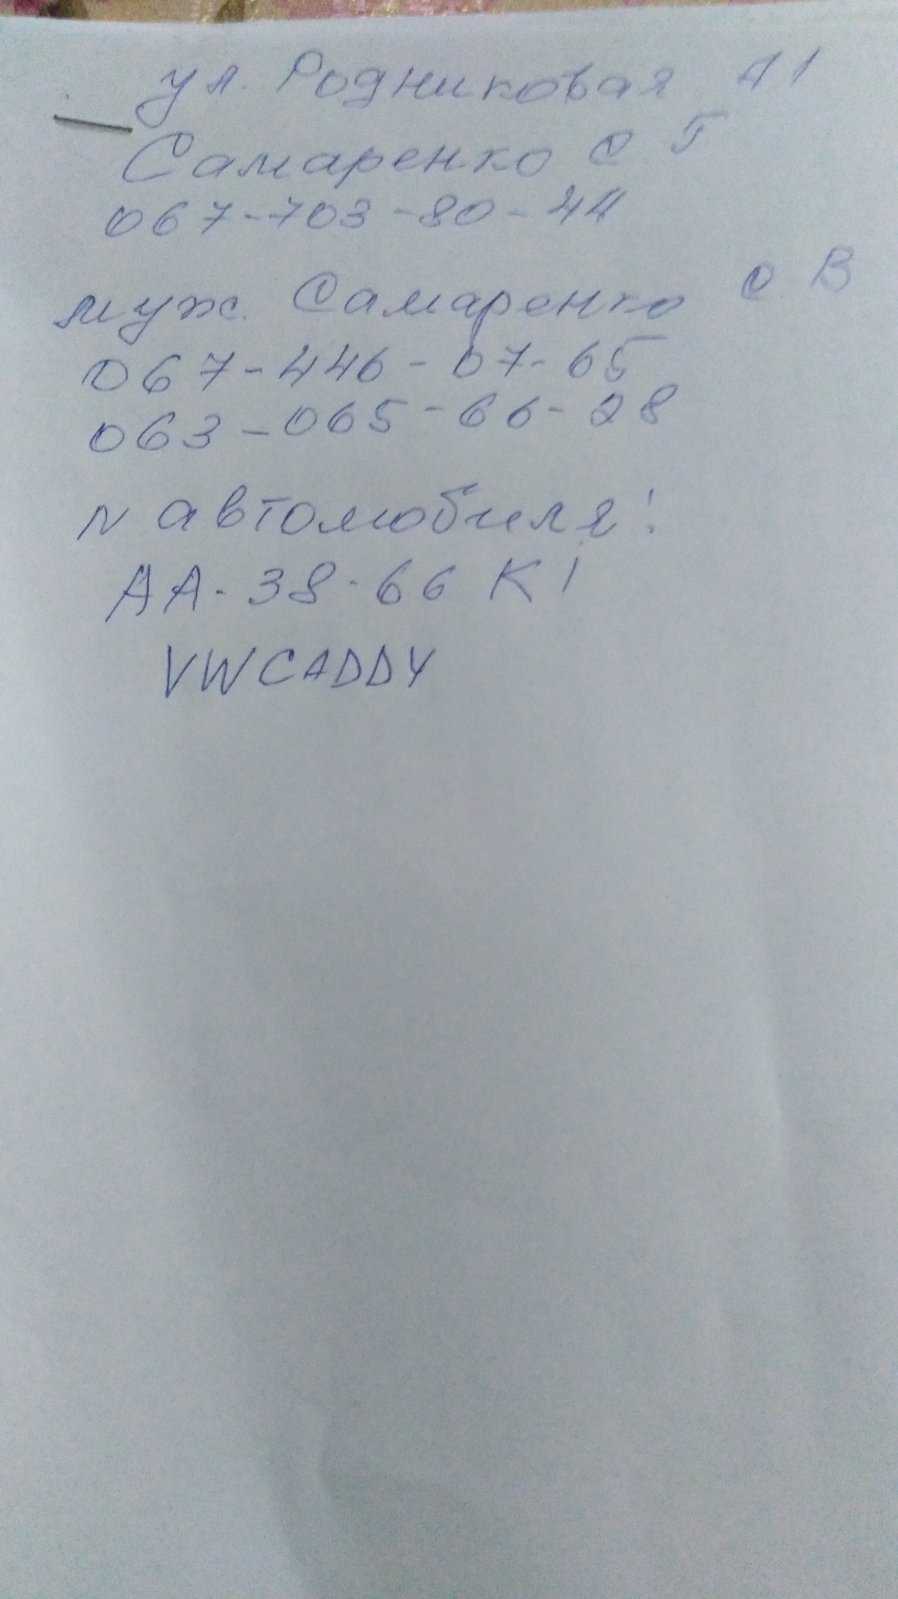 ул. Родниковая 41
Самаренко С Г
067-703-80-44
муж. Самаренко С. В
067-446-07-65
063-065-66-28
N автомобиля:
АА-38-66 КІ
VW CADDY